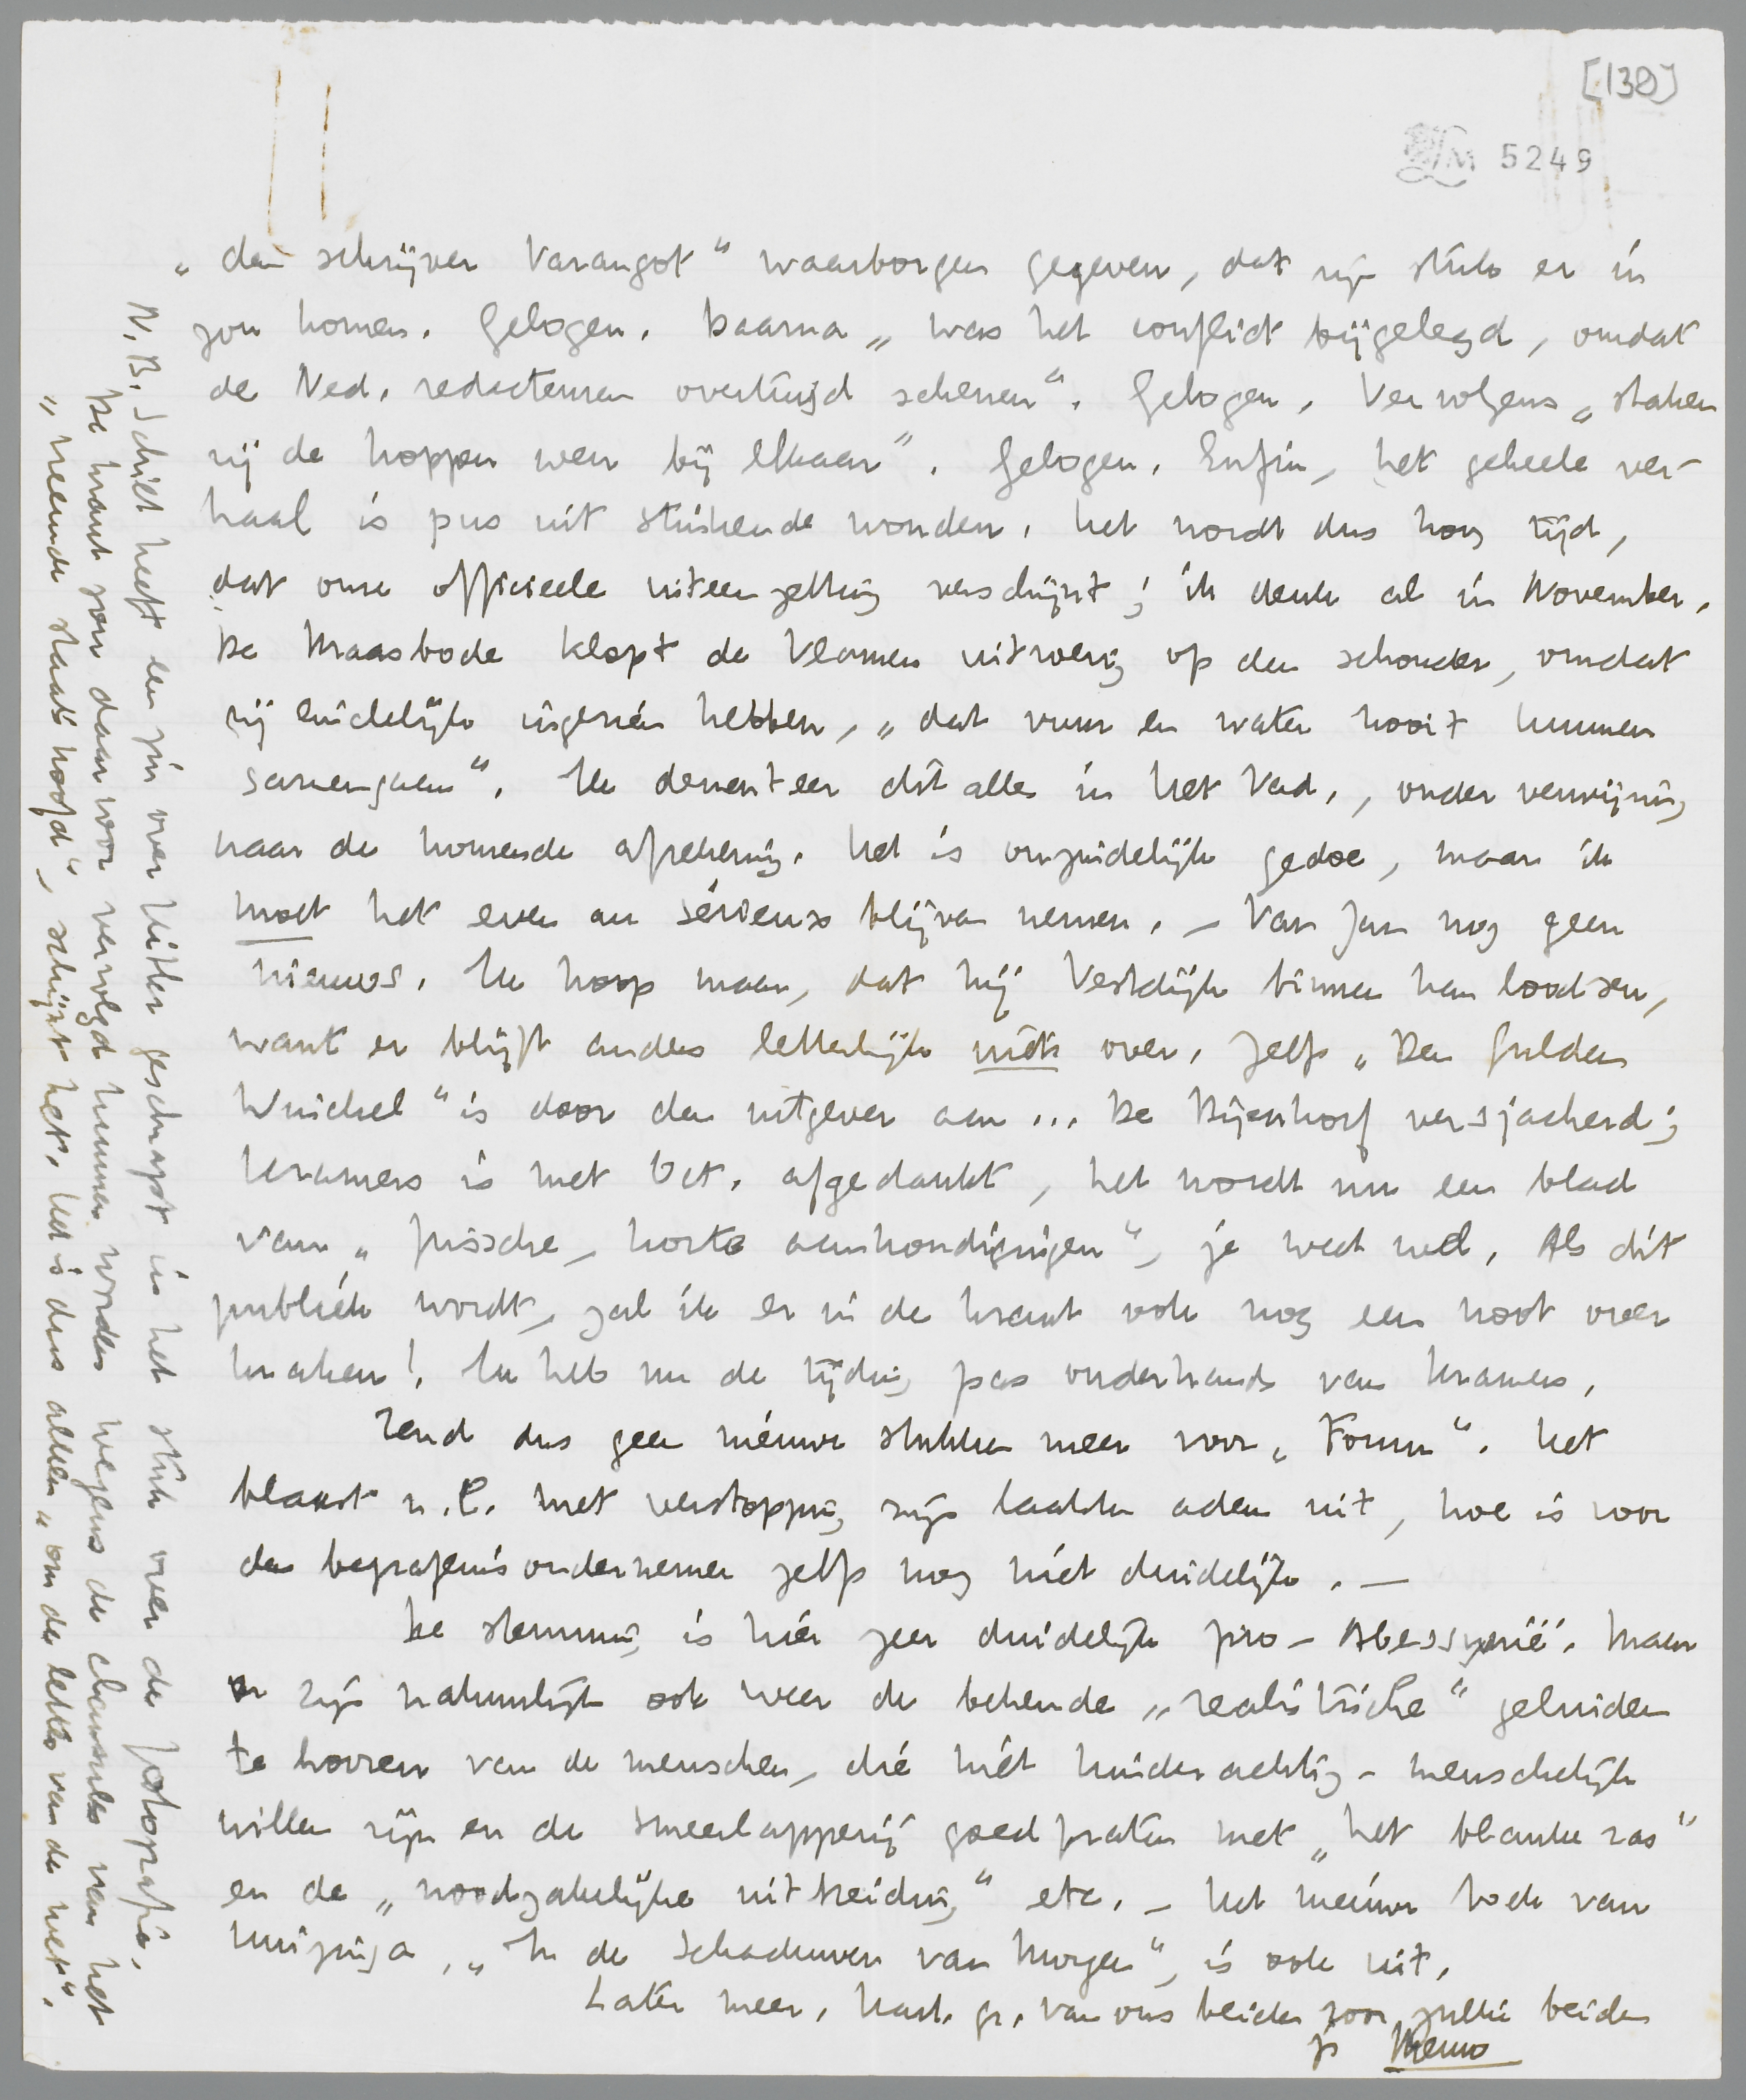 [130]
LM 5249
„den schrijver Varangot" waarborgen gegeven, dat zijn stuk er in
zou komen. Gelogen. Daarna „was het conflict bijgelegd, omdat
de Ned. redacteuren overtuigd schenen". Gelogen. Vervolgens „staken
zij de koppen weer bij elkaar". Gelogen. Enfin, het geheele ver-
haal is pus uit stinkende wonden. Het wordt dus hoog tijd,
dat onze officieele uiteenzetting verschijnt; ik denk al in November.
De Maasbode klopt de Vlamen uitwerig op den schouder, omdat
zij eindelijk ingezien hebben, „dat vuur en water nooit kunnen
samengaan". Ik dementeer dit alles in Het Vad., onder verwijzing
naar de komende afrekening. Het is onzindelijk gedoe, maar ik
moet het even au sérieux blijven nemen. – Van Jan nog geen
nieuws. Ik hoop maar, dat hij Vestdijk binnen kan loodsen,
want er blijft anders letterlijk niets over. Zelfs „Den Gulden
Winckel" is door den uitgever aan ... De Bijenkorf versjacherd;
Kramers is met Oct. afgedankt, het wordt nu een blad
van „frissche, korte aankondigingen", je weet wel. Als dit
publiek wordt, zal ik er in de krant ook nog een noot over
kraken! Ik heb nu de tijding pas onderhands van Kramers.
Zend dus geen nieuwe stukken meer voor „Forum". Het
blaast n.l. met verstopping zijn laatsten adem uit, hoe is voor
den begrafenisondernemer zelfs nog niet duidelijk. —
De stemming is hier zeer duidelijk pro-Abessynië. Maar
er zijn natuurlijk ook weer de bekende „realistische" geluiden
te hooren van de menschen, die niet kinderachtig-menschelijk
willen zijn en de smeerlapperij goedpraten met „het blanke ras"
en de „noodzakelijke uitbreiding" etc. – Het nieuwe boek van
Huizinga, „In de Schaduwen van Morgen", is ook uit.
Later meer. Hart. gr. van ons beiden voor jullie beiden
je Menno
N.B. Schiet heeft een zin over Hitler geschrapt in het stuk over de fotografie.
De krant zou daarvoor vervolgd kunnen worden wegens de clausules van het
„vreemde staatshoofd", schijnt het. Het is dus alleen „om de letter van de wet".